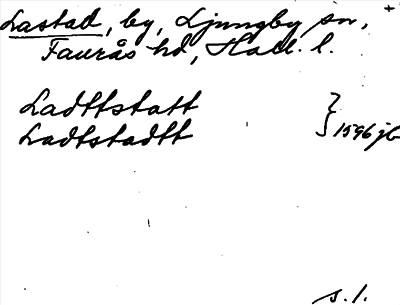 Lastad, by, Ljungby sn,
Faurås hd, Hall. l.
Ladttstatt
Ladtstadtt } 1596 jb
s. 1.